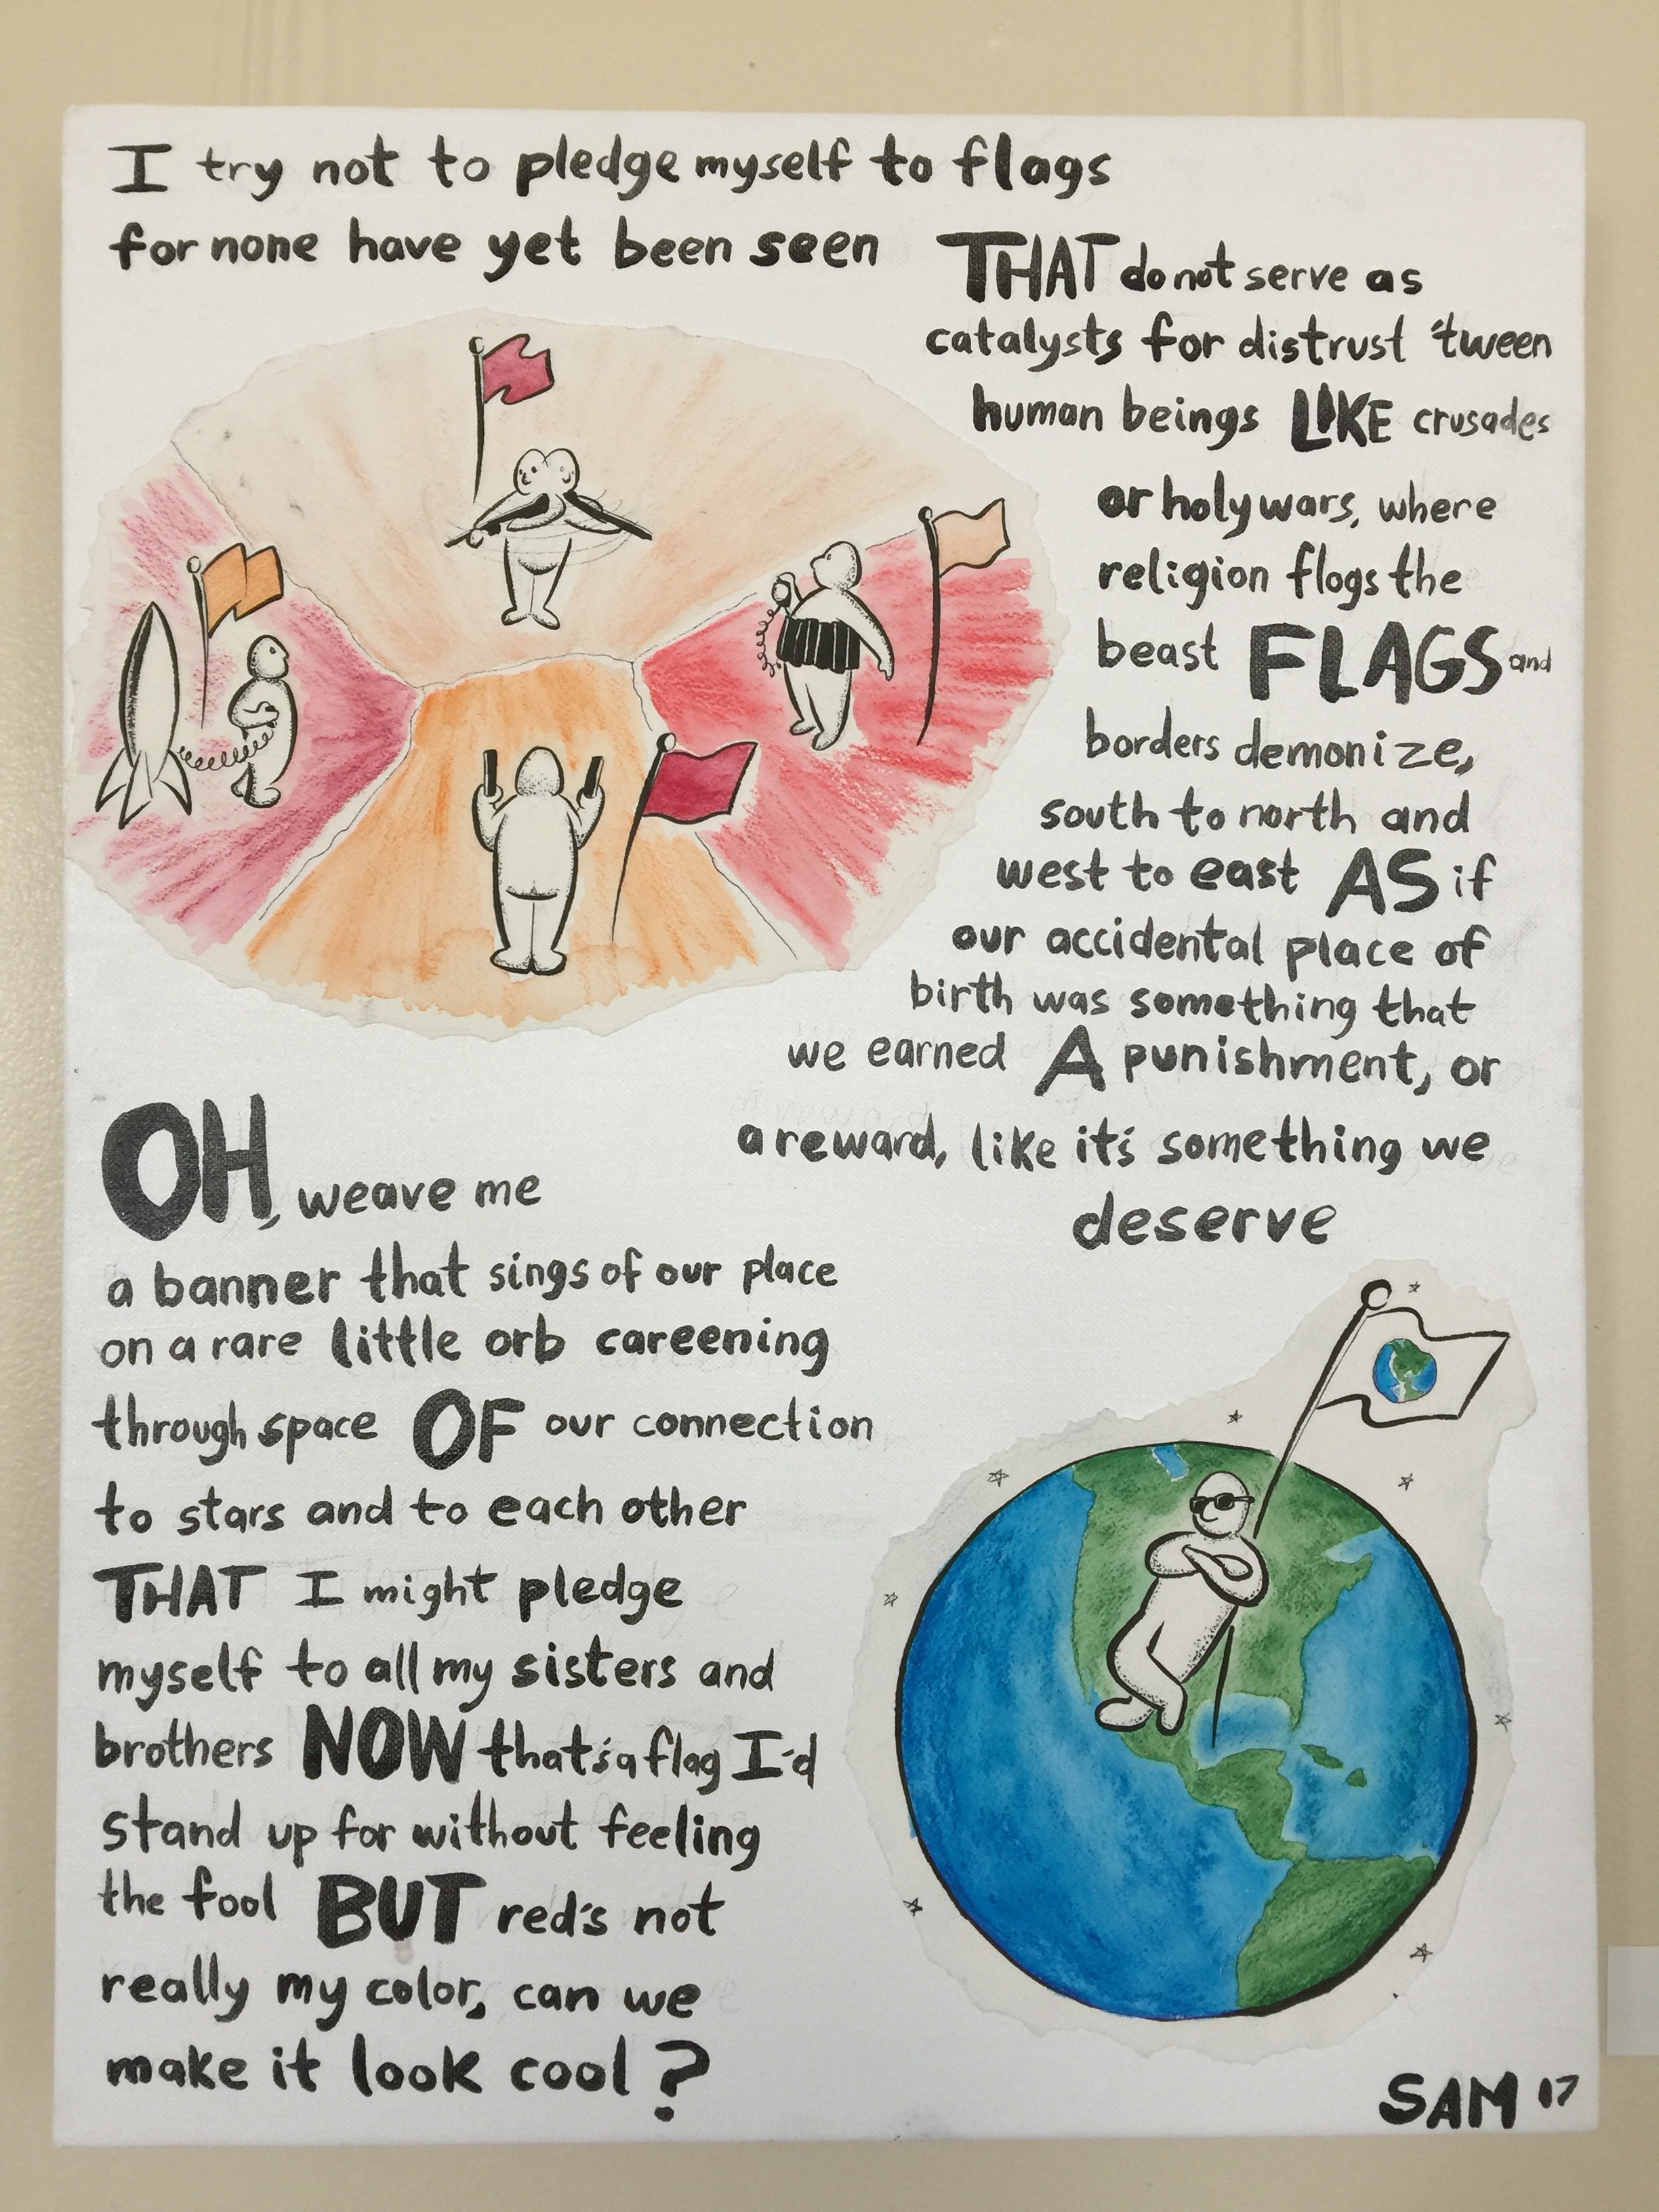 I try not to pledge myself to flags
for none have yet been seen
THAT do not serve as
catalysts for distrust 'tween
human beings LIKE crusades
or holy wars, where
religion flogs the
beast FLAGS and
borders demonize,
south to north and
west to east AS if
our accidental place of
birth was something that
we earned A punishment, or
a reward, like it's something we
deserve
OH, weave me
a banner that sings of our place
on a rare little orb careening
through space OF our connection
to stars and to each other
THAT I might pledge
myself to all my sisters and
brothers NOW that's a flag I'd
stand up for without feeling
the fool BUT red's not
really my color, can we
make it look cool?
SAM '17